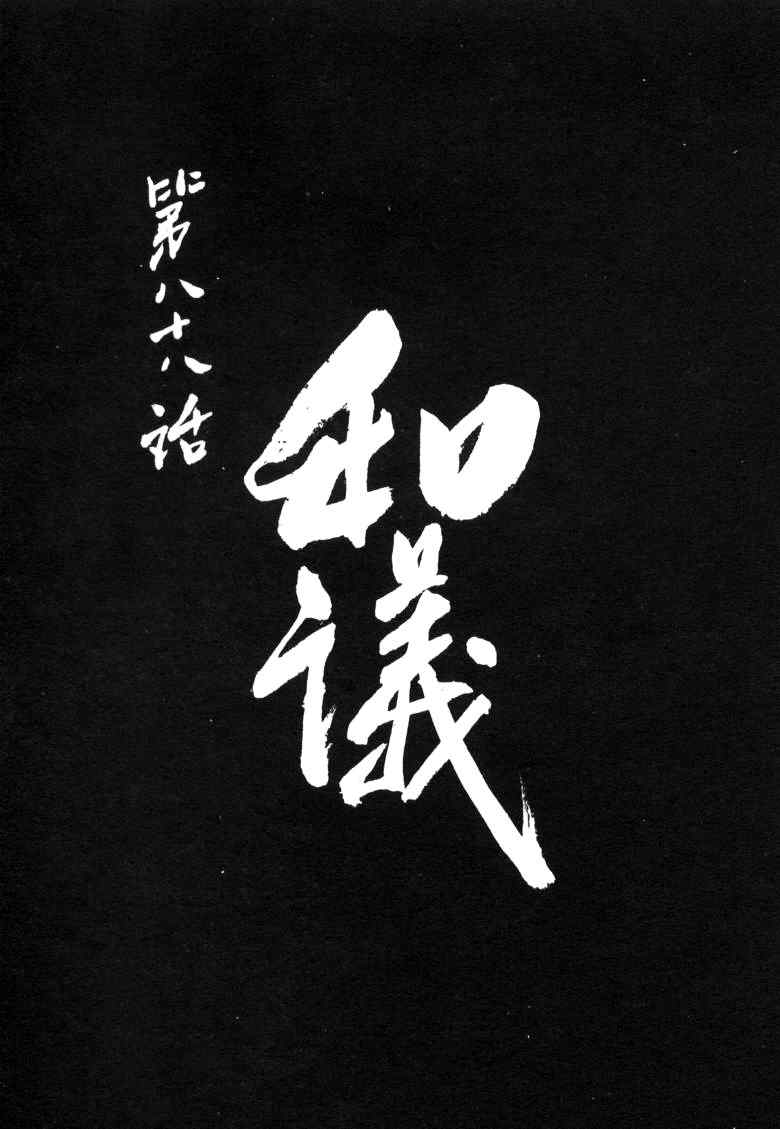 第八十八話
和議